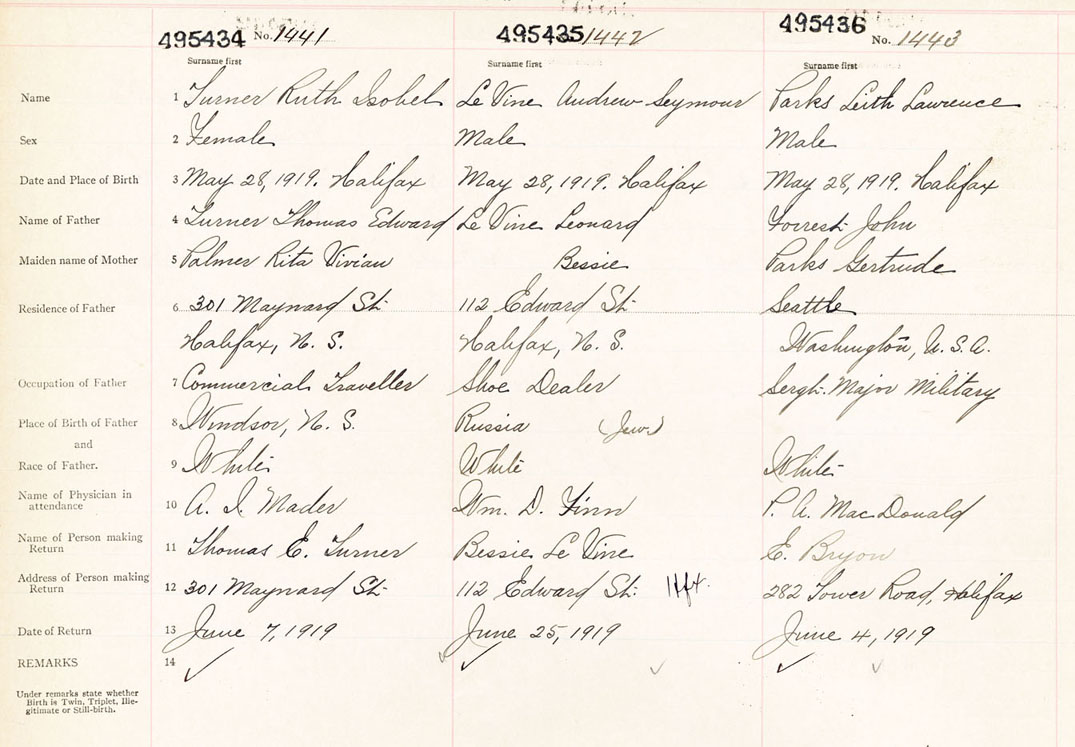 495434 No. 1441 495435 1442 495436 No. 1443
Surname first Surname first Surname first
Name 1 Turner Ruth Isobel Le Vine Andrew Seymour Parks Leith Lawrence
Sex 2 Female Male Male
Date and Place of Birth 3 May 28, 1919. Halifax May 28, 1919. Halifax May 28, 1919. Halifax
Name of Father 4 Turner Thomas Edward Le Vine Leonard Forrest John
Maiden name of Mother 5 Palmer Rita Vivian Bessie Parks Gertrude
Residence of Father 6 301 Maynard St. 112 Edward St. Seattle
Halifax, N. S. Halifax, N. S. Washington, U. S. A.
Occupation of Father 7 Commercial Traveller Shoe Dealer Sergt. Major Military
Place of Birth of Father 8 Windsor, N. S. Russia (Jew)
and
Race of Father. 9 White White White
Name of Physician in
attendance 10 A. I. Mader Wm. D. Finn P. A. MacDonald
Name of Person making
Return 11 Thomas E. Turner Bessie Le Vine E. Bryon
Address of Person making
Return 12 301 Maynard St. 112 Edward St. Hfx. 282 Tower Road, Halifax
Date of Return 13 June 7, 1919 June 25, 1919 June 4, 1919
REMARKS 14 ✓ ✓ ✓ ✓ ✓
Under remarks state whether
Birth is Twin, Triplet, Ille-
gitimate or Still-birth.